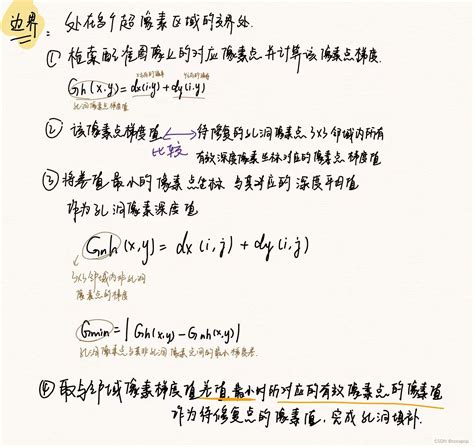 边界：处在多个超像素区域的交界处.
① 检索配准图像上的对应像素点并计算该像素点梯度.
x方向的偏导 y方向的偏导
Gh(x,y) = dx(i,y) + dy(i,y)
孔洞像素点梯度值
② 该像素点梯度值 ⟷ 待修复的孔洞像素点 3x3 邻域内所有
比较 有效深度像素坐标对应的像素点梯度值
③ 将差值最小的像素点坐标与其对应的深度平均值
作为孔洞像素深度值
Gnh(x,y) = dx(i,j) + dy(i,j)
3x3邻域内非孔洞
像素点的梯度
Gmin = | Gh(x,y) − Gnh(x,y) |
孔洞像素点与其非孔洞像素点间的最小梯度差.
④ 取与邻域像素梯度值差值最小时所对应的有效像素点的像素值
作为待修复点的像素值, 完成孔洞填补.